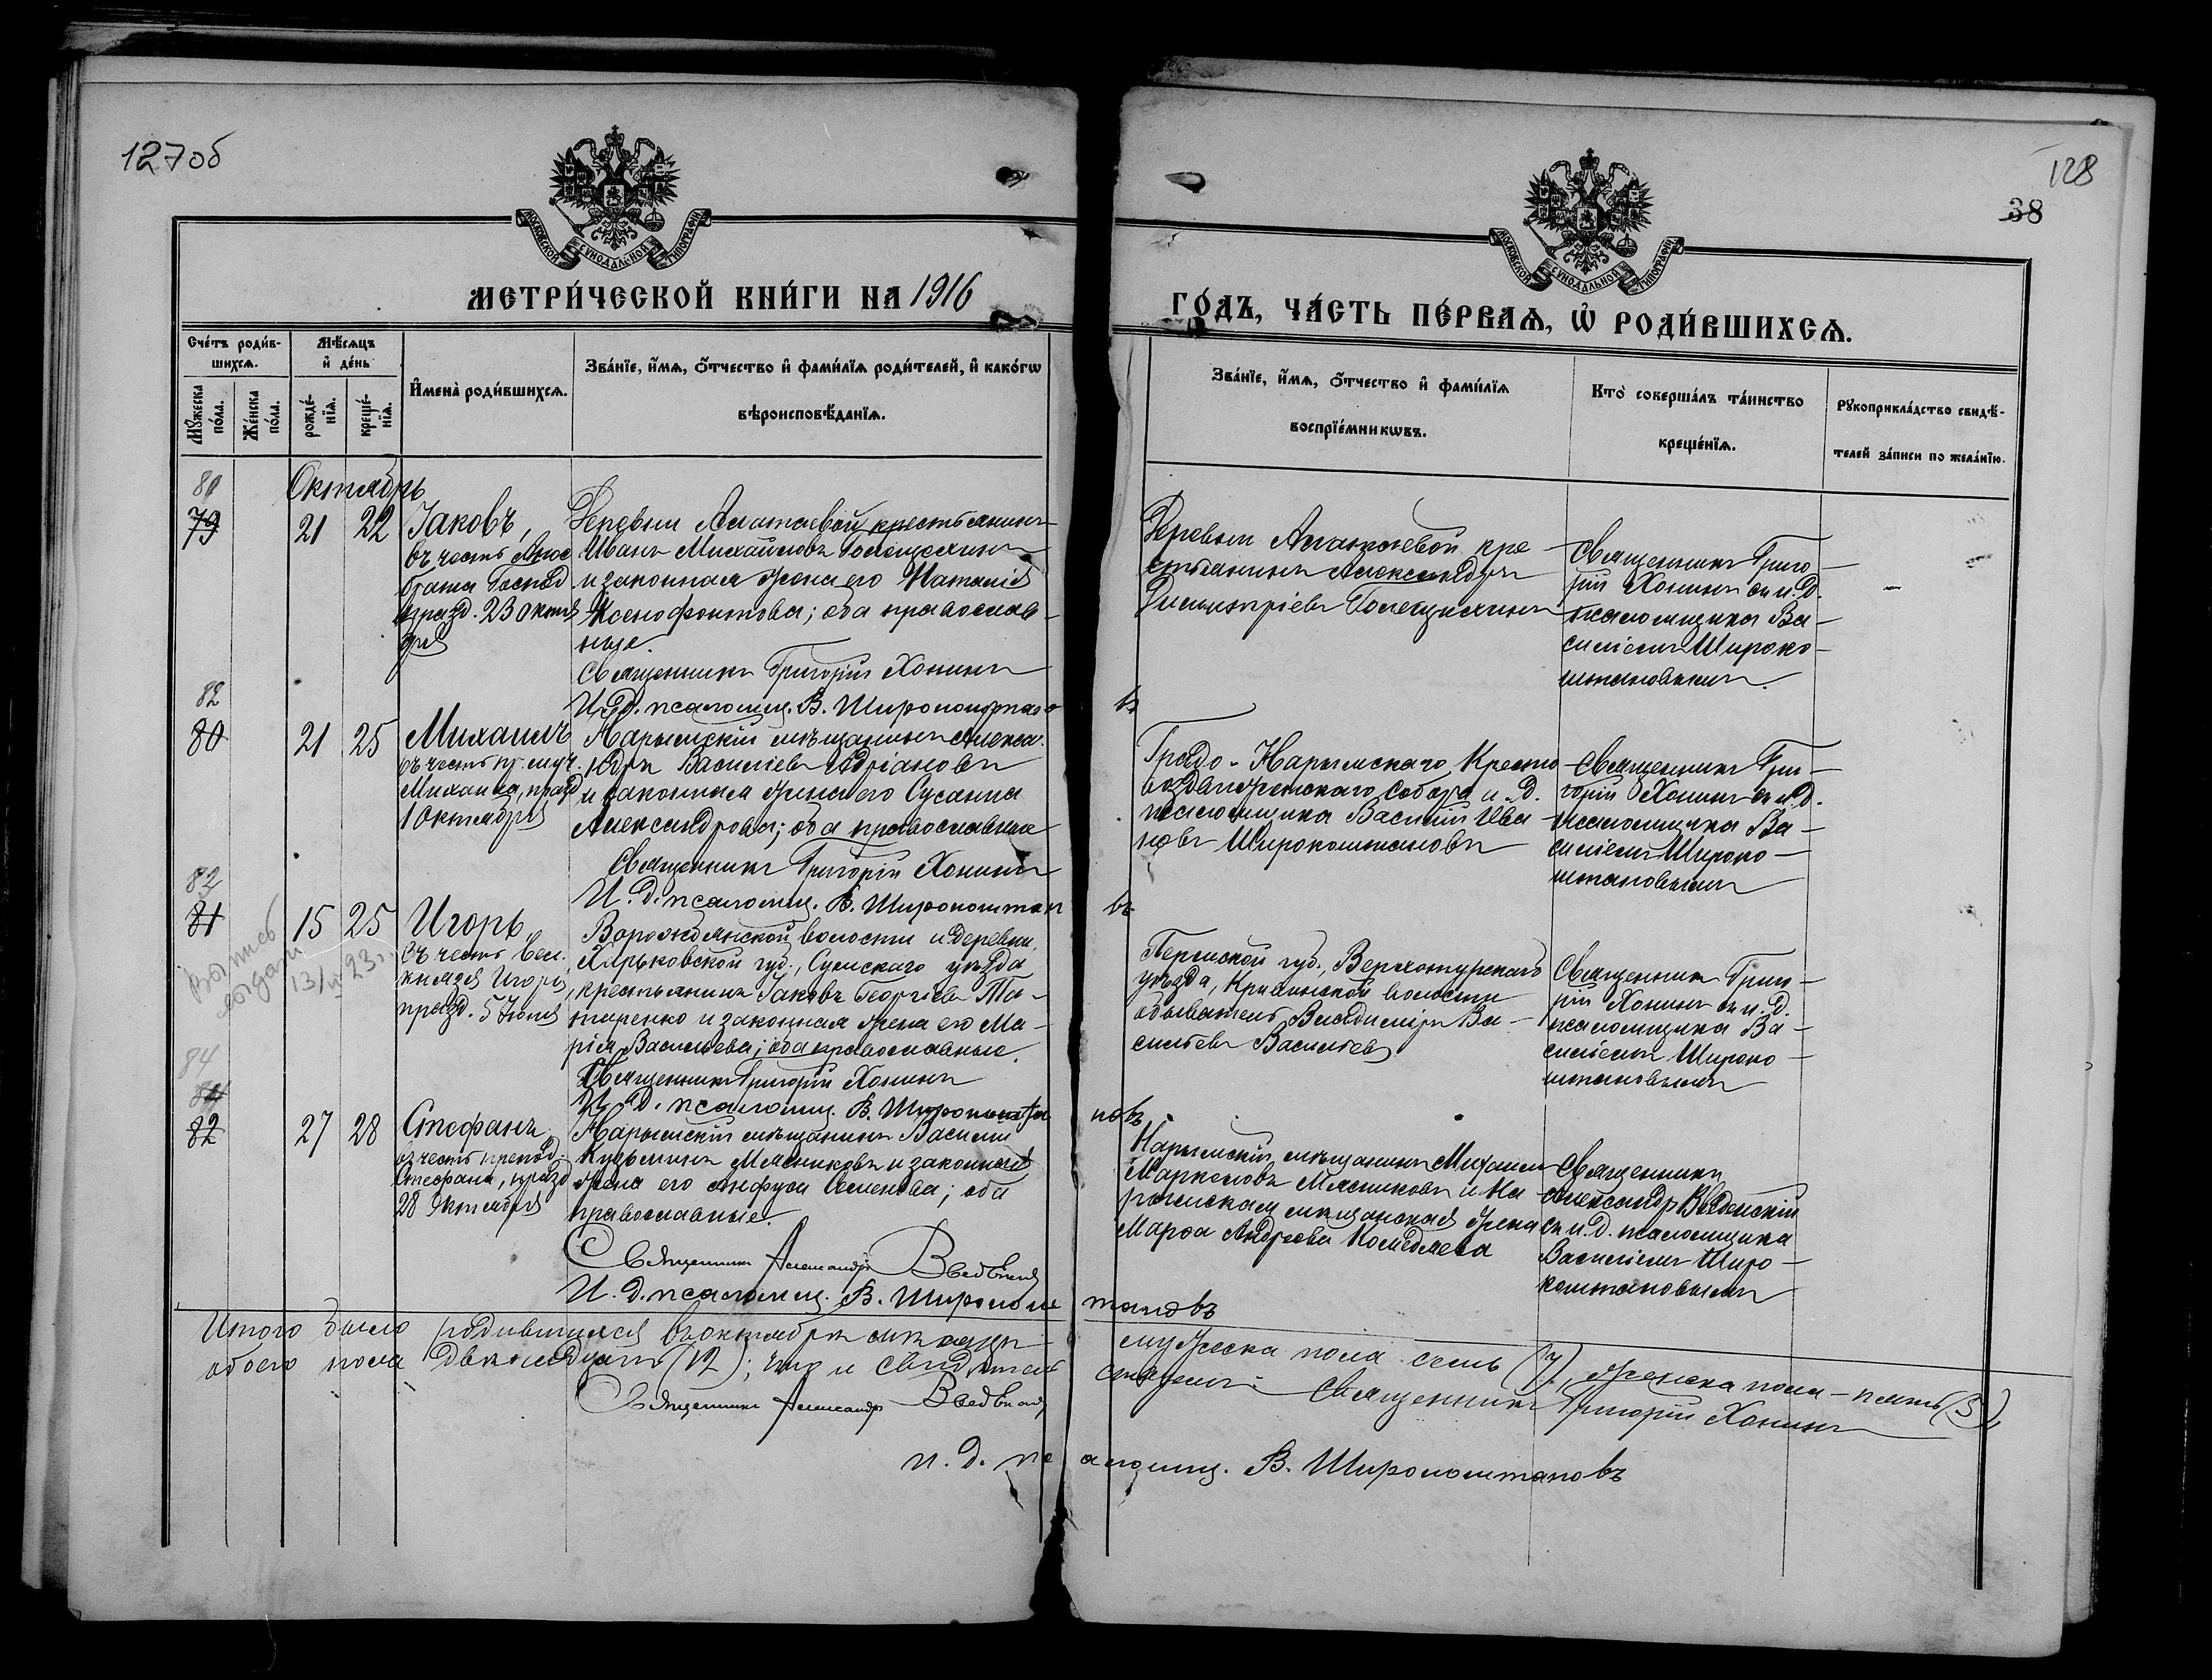 127об
128
38
МОСКОВСКОЙ СѴНОДАЛЬНОЙ ТИПОГРАФІИ
МОСКОВСКОЙ СѴНОДАЛЬНОЙ ТИПОГРАФІИ
МЕТРИ́ЧЕСКОЙ КНИ́ГИ НА 1916
ГО́ДЪ, ЧА́СТЬ ПЕ́РВАѦ, Ѡ҆ РОДИ́ВШИХСѦ.
Сче́тъ роди́в-
шихсѧ.
Мѣ́сѧцъ
и҆ де́нь
Мꙋ́жеска
по́ла.
Же́нска
по́ла.
рожде́-
нїѧ.
креще́-
нїѧ.
И҆мена̀ роди́вшихсѧ.
Зва́нїе, и҆́мѧ, ѻ҆́тчество и҆ фами́лїѧ роди́телей, и҆ како́гѡ
вѣроисповѣ́данїѧ.
Зва́нїе, и҆́мѧ, ѻ҆́тчество и҆ фами́лїѧ
воспрїе́мникѡвъ.
Кто̀ соверша́лъ та́инство
креще́нїѧ.
Рꙋкоприкла́дство свидѣ́-
телей за́писи по жела́нїю.
81
Октябрь
79
21 22
Іаковъ,
въ честь Апос
брата Господ
празд. 23 Октя
бря
Деревни Алатаевой крестьянинъ
Иванъ Михайловъ Голещихинъ
и законная жена его Наталія
Ксенофонтова; оба православ-
ные.
Священникъ Григорій Хонинъ
И. д. псаломщ. В. Широкоштано
въ
Деревни Алатаевой кре-
стьянинъ Александръ
Димитріевъ Голещихинъ
Священникъ Григо-
рій Хонинъ съ и. д.
псаломщика Ва-
силіемъ Широко-
штановымъ.
82
80
21 25
Михаилъ
въ честь пр. муч.
Михаила, празд
1 Октября
Нарымскій мѣщанинъ Алекса-
ндръ Василіевъ Адріановъ
и законная жена его Сусанна
Александрова; оба православные
Священникъ Григорій Хонинъ
И. д. псаломщ. В. Широкоштан
въ
Градо-Нарымскаго Кресто-
воздвиженскаго собора и. д.
псаломщика Василій Ива-
новъ Широкоштановъ
Священникъ Гри-
горій Хонинъ съ и. д.
псаломщика Ва-
силіемъ Широко-
штановымъ
82
81
15 25
Выпись
выдали
13/II 23 г.
Игорь
въ честь вел.
князя Игоря,
празд. 5 Іюня
Ворожбянской волости и деревни,
Харьковской губ., Сумскаго уѣзда
крестьянинъ Іаковъ Георгіевъ Та-
таренко и законная жена его Ма-
рія Васильева; оба православные.
Священникъ Григорій Хонинъ
И. д. псаломщ. В. Широкошта
новъ
Пермской губ., Верхотурскаго
уѣзда, волости
обыватель Владиміръ Ва-
сильевъ Васильевъ
Священникъ Григо-
рій Хонинъ съ и. д.
псаломщика Ва-
силіемъ Широко-
штановымъ
84
82
27 28
Стефанъ
въ честь препод.
Стефана, празд
28 Октября
Нарымскій мѣщанинъ Василій
Кузьминъ Мясниковъ и законная
жена его Анфуса Семенова; оба
православные.
Священникъ Александръ Введенскій
И. д. псаломщ. В. Широкош
тановъ
Нарымскій мѣщанинъ Михаилъ
Маркеловъ Мясниковъ и На-
рымская мѣщанская жена
Марѳа Андреева
Священникъ
Александръ Введенскій
съ и. д. псаломщика
Василіемъ Широ-
коштановымъ
Итого было родившихся въ октябрѣ мѣсяцѣ
мужеска пола семь (7), женска пола - пять (5),
обоего пола двѣнадцать (12); что и свидѣтель
ствуемъ: Священникъ Григорій Хонинъ
Священникъ Александръ Введенскій
и. д. пс
аломщ. В. Широкоштановъ